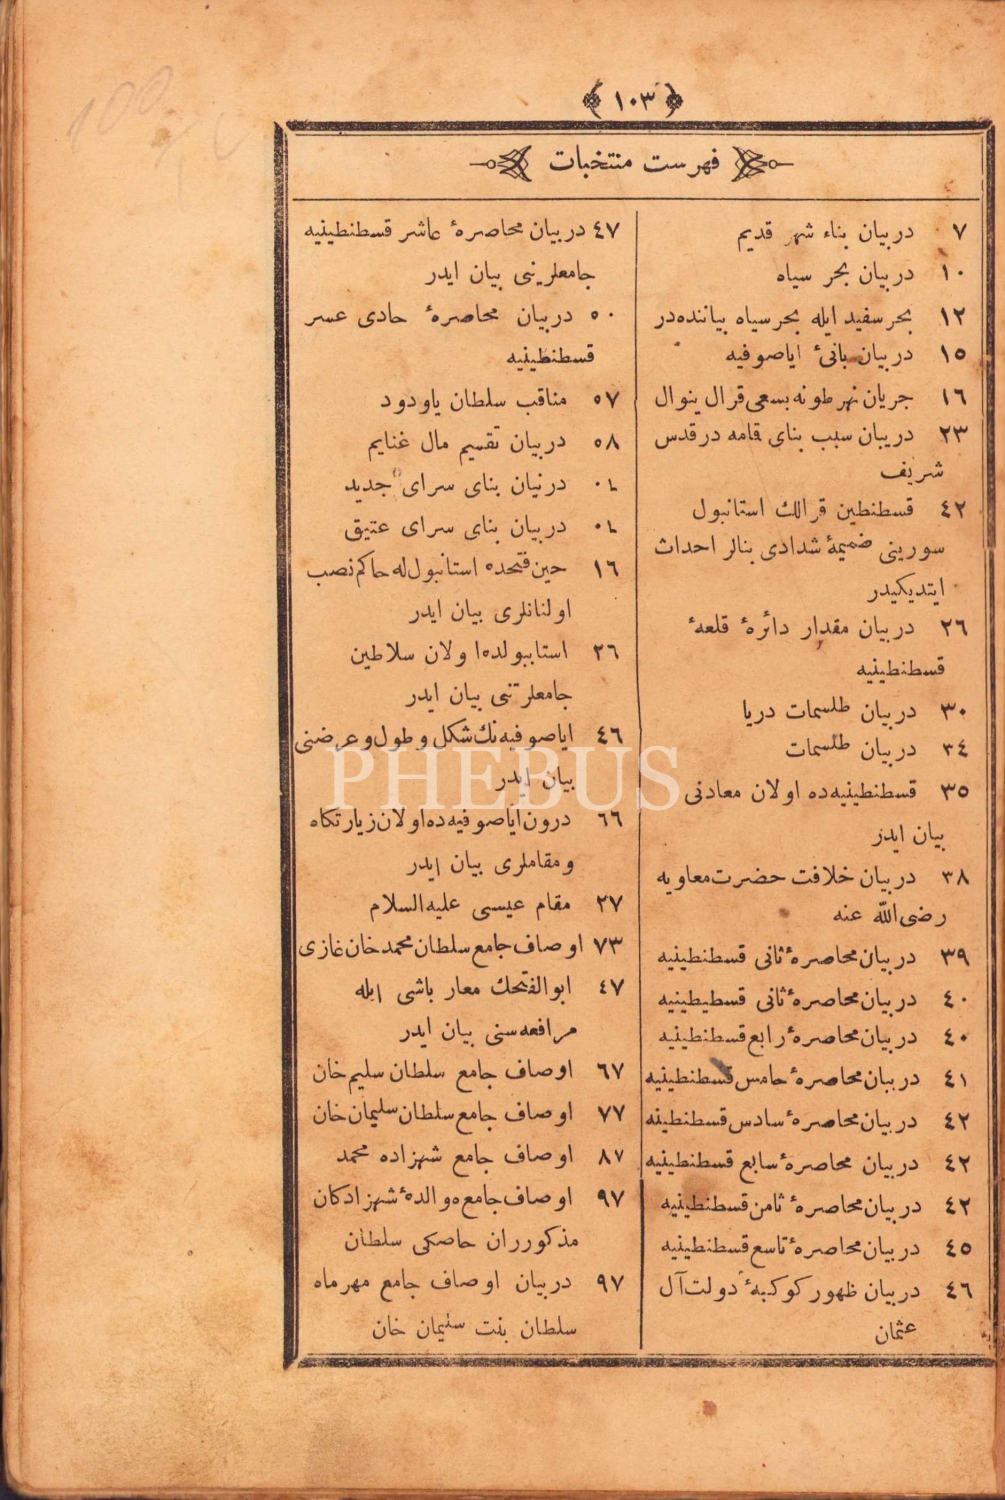 ﴿ ١٠٣ ﴾
فهرست منتخبات
٧ در بيان بناء شهر قديم
١٠ در بيان بحر سياه
١٢ بحر سفيد ايله بحر سياه بياننده در
١٥ در بيان بانئ اياصوفيه
١٦ جريان نهر طونه بسعی قرال ينوال
٢٣ در بيان سبب بنای قامه در قدس
شريف
٤٢ قسطنطين قرالك استانبول
سورينی ضميمهٔ شدادی بنالر احداث
ايتديكيدر
٢٦ در بيان مقدار دائرهٔ قلعهٔ
قسطنطينيه
٣٠ در بيان طلسمات دريا
٣٤ در بيان طلسمات
٣٥ قسطنطينيه ده اولان معادنی
بيان ايدر
٣٨ در بيان خلافت حضرت معاويه
رضی الله عنه
٣٩ در بيان محاصرهٔ ثانی قسطنطينيه
٤٠ در بيان محاصرهٔ ثانی قسطيطينيه
٤٠ در بيان محاصرهٔ رابع قسطنطينيه
٤١ در بيان محاصرهٔ حامس قسطنطينيه
٤٢ در بيان محاصرهٔ سادس قسطنطينه
٤٢ در بيان محاصرهٔ سابع قسطنطينيه
٤٢ در بيان محاصرهٔ ثامن قسطنطينيه
٤٥ در بيان محاصرهٔ تاسع قسطنطينيه
٤٦ در بيان ظهور كوكبهٔ دولت آل
عثمان
٤٧ در بيان محاصرهٔ عاشر قسطنطينيه
جامعلرينی بيان ايدر
٥٠ در بيان محاصرهٔ حادی عسر
قسطنطينيه
٥٧ مناقب سلطان ياودود
٥٨ در بيان تقسيم مال غنايم
در نيان بنای سرای جديد
در بيان بنای سرای عتيق
١٦ حين فتحده استانبول له حاكم نصب
اولنانلری بيان ايدر
٢٦ استاببولده اولان سلاطين
جامعلرتنی بيان ايدر
٤٦ اياصوفيه نك شكل و طول و عرضنی
بيان ايدر
٦٦ درون اياصوفيه ده اولان زيارتكاه
ومقاملری بيان ايدر
٢٧ مقام عيسی عليه السلام
٧٣ اوصاف جامع سلطان محمد خان غازی
٤٧ ابوالفتحك معار باشی ايله
مرافعه سنی بيان ايدر
٦٧ اوصاف جامع سلطان سليم خان
٧٧ اوصاف جامع سلطان سليمان خان
٨٧ اوصاف جامع شهزاده محمد
٩٧ اوصاف جامع ه والدهٔ شهزادكان
مذكورران حاصكی سلطان
٩٧ در بيان اوصاف جامع مهرماه
سلطان بنت سليمان خان
PHEBUS